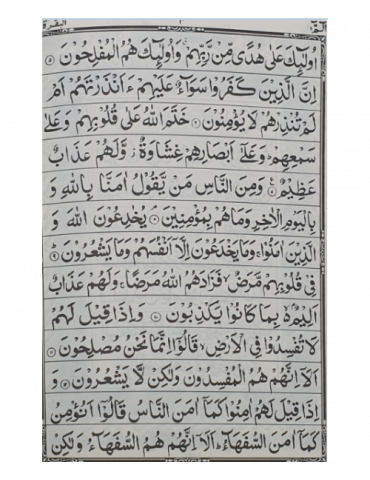 البقرة ٢ ٢ الٓمّٓ ١
اُولٰٓئِكَ عَلٰى هُدًى مِّنْ رَّبِّهِمْ ۙ وَاُولٰٓئِكَ هُمُ الْمُفْلِحُوْنَ ۝۵
اِنَّ الَّذِيْنَ كَفَرُوْا سَوَآءٌ عَلَيْهِمْ ءَاَنْذَرْتَهُمْ اَمْ
لَمْ تُنْذِرْهُمْ لَا يُؤْمِنُوْنَ ۝۶ خَتَمَ اللّٰهُ عَلٰى قُلُوْبِهِمْ وَعَلٰى
سَمْعِهِمْ ؕ وَعَلٰٓى اَبْصَارِهِمْ غِشَاوَةٌ ؗ وَّلَهُمْ عَذَابٌ
عَظِيْمٌ ۝۷ وَمِنَ النَّاسِ مَنْ يَّقُوْلُ اٰمَنَّا بِاللّٰهِ وَ
بِالْيَوْمِ الْاٰخِرِ وَمَا هُمْ بِمُؤْمِنِيْنَ ۝۸ يُخٰدِعُوْنَ اللّٰهَ وَ
الَّذِيْنَ اٰمَنُوْا ۚ وَمَا يَخْدَعُوْنَ اِلَّاۤ اَنْفُسَهُمْ وَمَا يَشْعُرُوْنَ ۝۹
فِيْ قُلُوْبِهِمْ مَّرَضٌ ۙ فَزَادَهُمُ اللّٰهُ مَرَضًا ۚ وَلَهُمْ عَذَابٌ
اَلِيْمٌۢ ۙ۬ بِمَا كَانُوْا يَكْذِبُوْنَ ۝۱۰ وَاِذَا قِيْلَ لَهُمْ
لَا تُفْسِدُوْا فِي الْاَرْضِ ۙ قَالُوْۤا اِنَّمَا نَحْنُ مُصْلِحُوْنَ ۝۱۱
اَلَاۤ اِنَّهُمْ هُمُ الْمُفْسِدُوْنَ وَلٰكِنْ لَّا يَشْعُرُوْنَ ۝۱۲ وَ
اِذَا قِيْلَ لَهُمْ اٰمِنُوْا كَمَاۤ اٰمَنَ النَّاسُ قَالُوْۤا اَنُؤْمِنُ
كَمَاۤ اٰمَنَ السُّفَهَآءُ ؕ اَلَاۤ اِنَّهُمْ هُمُ السُّفَهَآءُ وَلٰكِنْ